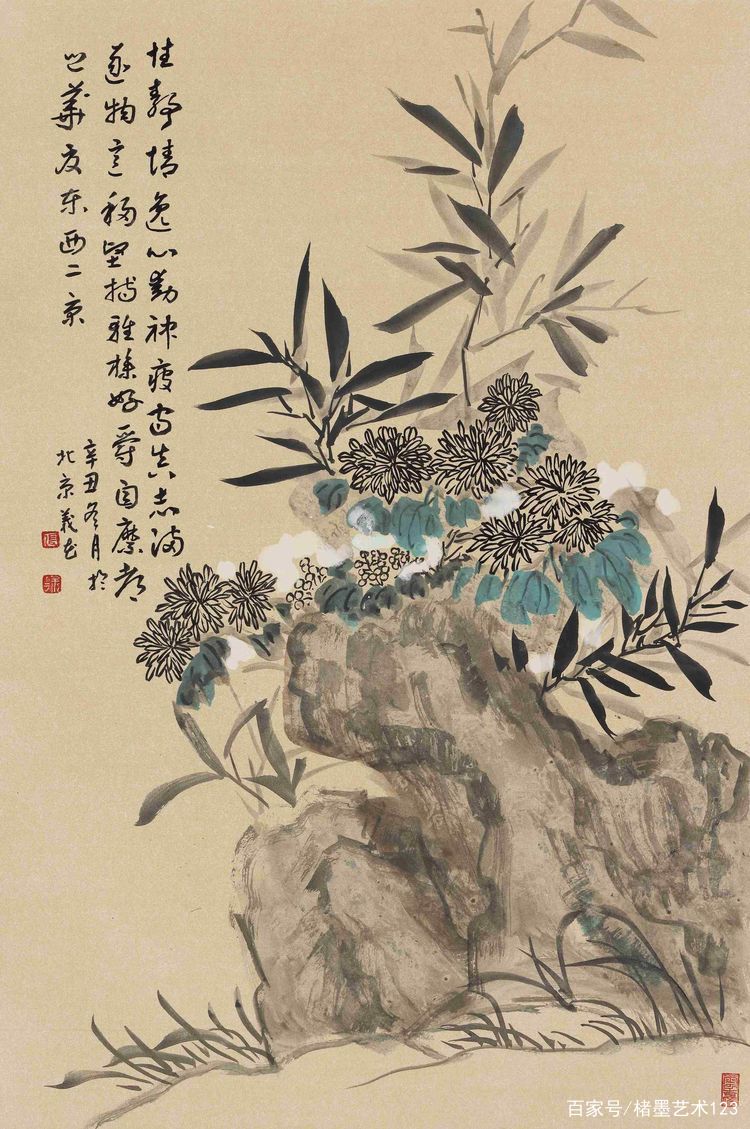 性静情逸心动神疲守真志满
逐物意移坚持雅操好爵自縻都
邑华夏东西二京
辛丑冬月于
北京义
百家号/楮墨艺术123